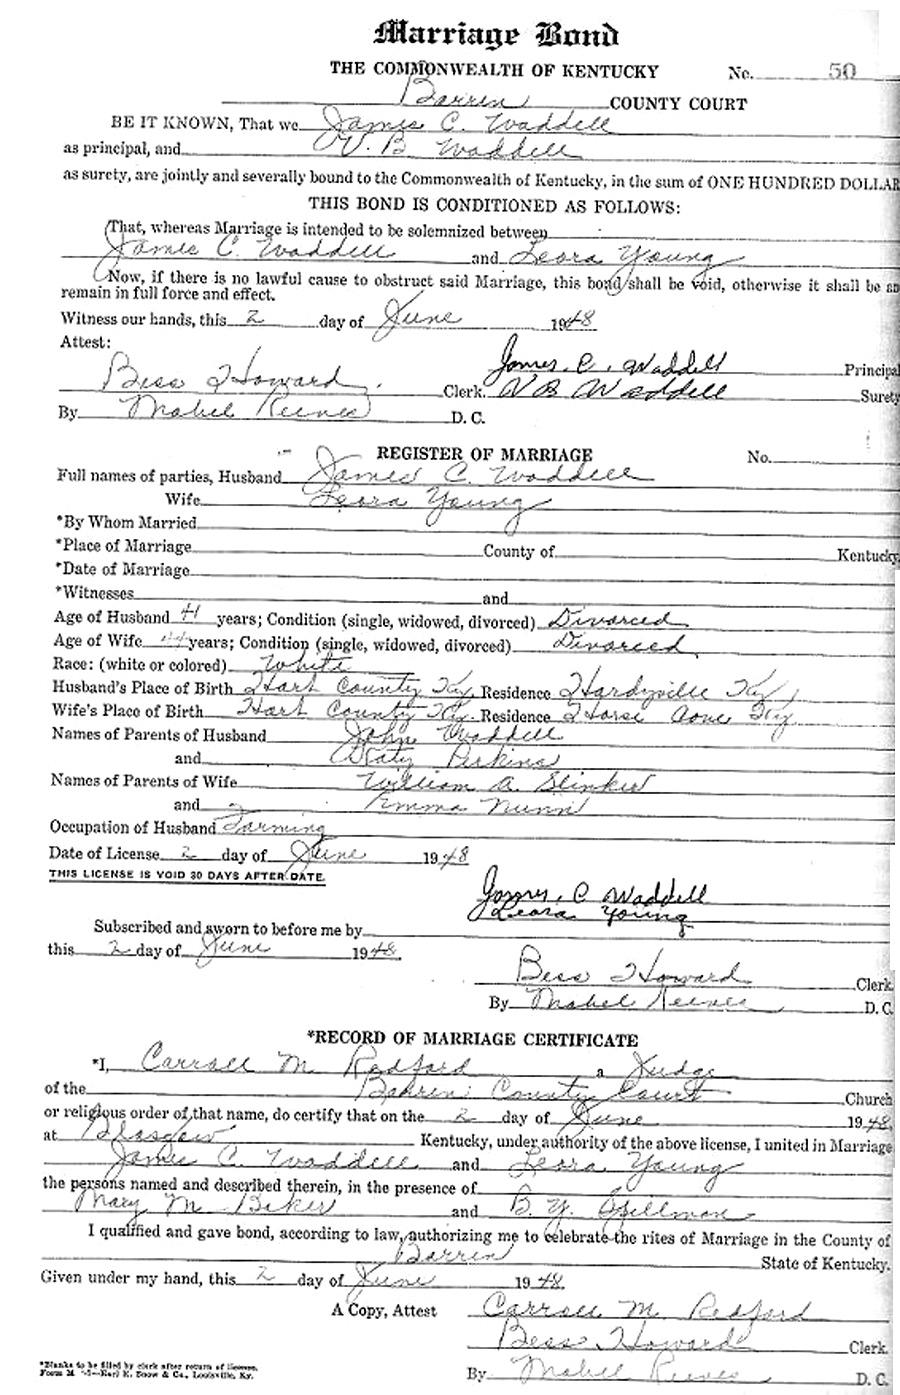 Marriage Bond
THE COMMONWEALTH OF KENTUCKY No. 50
Barren COUNTY COURT
BE IT KNOWN, That we James C. Waddell
as principal, and V. B. Waddell
as surety, are jointly and severally bound to the Commonwealth of Kentucky, in the sum of ONE HUNDRED DOLLAR
THIS BOND IS CONDITIONED AS FOLLOWS:
That, whereas Marriage is intended to be solemnized between
James C. Waddell and Leora Young
Now, if there is no lawful cause to obstruct said Marriage, this bond shall be void, otherwise it shall be an
remain in full force and effect.
Witness our hands, this 2 day of June 1948
Attest:
James. C. Waddell Principal
Bess Howard. Clerk. V B Waddell Surety
By Mabel Reeves D. C.
REGISTER OF MARRIAGE No.
Full names of parties, Husband James C. Waddell
Wife Leora Young
*By Whom Married
*Place of Marriage County of Kentucky,
*Date of Marriage
*Witnesses and
Age of Husband 41 years; Condition (single, widowed, divorced) Divorced
Age of Wife 44 years; Condition (single, widowed, divorced) Divorced
Race: (white or colored) White
Husband's Place of Birth Hart County Ky. Residence Hardyville Ky,
Wife's Place of Birth Hart County Ky. Residence Horse Cave Ky.
Names of Parents of Husband John Waddell
and Katy Perkins
Names of Parents of Wife William A. Slinker
and Emma Nunn
Occupation of Husband Farming
Date of License 2 day of June 1948
THIS LICENSE IS VOID 30 DAYS AFTER DATE.
James. C Waddell
Leora Young
Subscribed and sworn to before me by
this 2 day of June 1948.
Bess Howard Clerk.
By Mabel Reeves D. C.
*RECORD OF MARRIAGE CERTIFICATE
*I, Carroll M Redford a Judge
of the Barren County Court Church
or religious order of that name, do certify that on the 2 day of June 1948,
at Glasgow Kentucky, under authority of the above license, I united in Marriage
James C. Waddell and Leora Young
the persons named and described therein, in the presence of
Mary M Biker and B. Y. Spillman
I qualified and gave bond, according to law, authorizing me to celebrate the rites of Marriage in the County of
Barren State of Kentucky.
Given under my hand, this 2 day of June 1948.
A Copy, Attest Carroll M. Redford
Bess Howard Clerk.
By Mabel Reeves D. C.
*Blanks to be filled by clerk after return of license.
Form M Earl K. Snow & Co., Louisville, Ky.